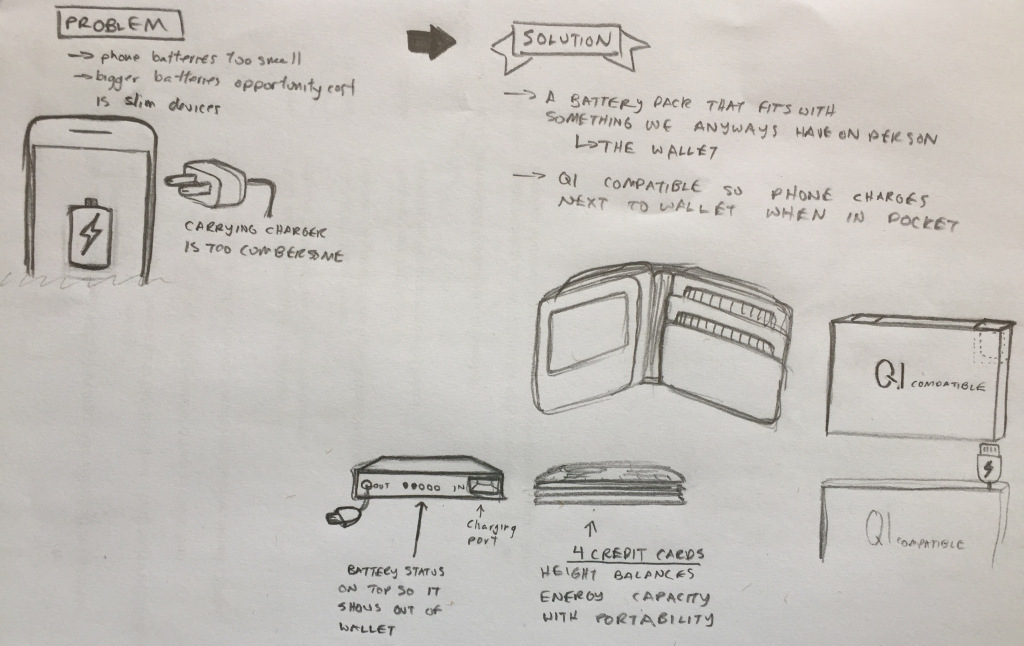 PROBLEM
→ phone batteries too small
→ bigger batteries opportunity cost
is slim devices
CARRYING CHARGER
IS TOO CUMBERSOME
SOLUTION
→ A BATTERY PACK THAT FITS WITH
SOMETHING WE ANYWAYS HAVE ON PERSON
↳ THE WALLET
→ QI COMPATIBLE SO PHONE CHARGES
NEXT TO WALLET WHEN IN POCKET
QI COMPATIBLE
OUT IN
Charging
port
BATTERY STATUS
ON TOP SO IT
SHOWS OUT OF
WALLET
4 CREDIT CARDS
HEIGHT BALANCES
ENERGY CAPACITY
WITH PORTABILITY
QI COMPATIBLE